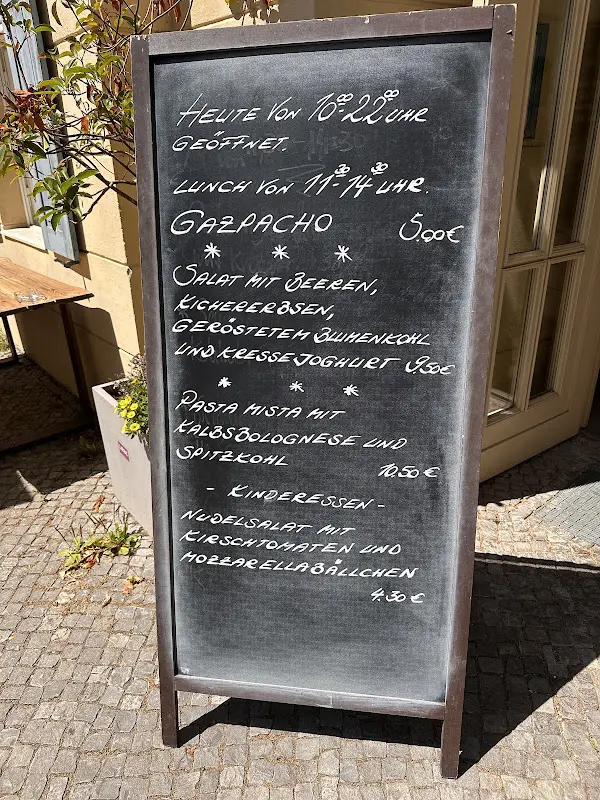 HEUTE VON 10⁰⁰-22⁰⁰ UHR
GEÖFFNET.
LUNCH VON 11³⁰-14³⁰ UHR.
GAZPACHO 5,00€
* * *
SALAT MIT BEEREN,
KICHERERBSEN,
GERÖSTETEM BLUMENKOHL
UND KRESSEJOGHURT 9.50€
* * *
PASTA MISTA MIT
KALBSBOLOGNESE UND
SPITZKOHL 10.50€
- KINDERESSEN -
NUDELSALAT MIT
KIRSCHTOMATEN UND
MOZZARELLABÄLLCHEN
4.30€